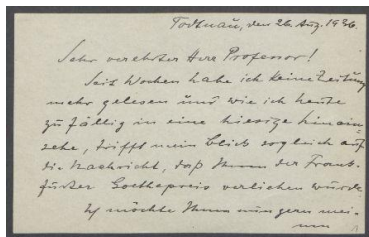 Todtnau, den 26. Aug. 1936.
Sehr verehrter Herr Professor!
Seit Wochen habe ich keine Zeitung
mehr gelesen und wie ich heute
zufällig in eine hiesige hinein-
sehe, trifft mein Blick sogleich auf
die Nachricht, daß Ihnen der Frank-
furter Goethepreis verliehen wurde
Ich möchte Ihnen nun gern mei-
nen